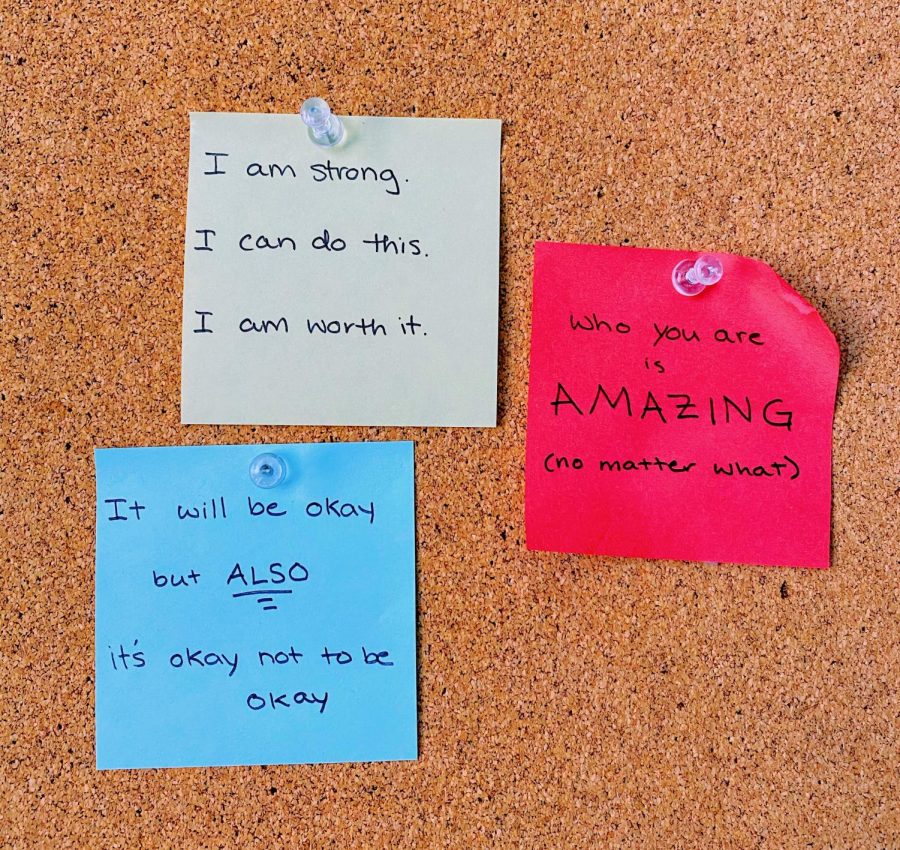 I am strong.
I can do this.
I am worth it.
who you are
is
AMAZING
(no matter what)
It will be okay
but ALSO
it's okay not to be
okay